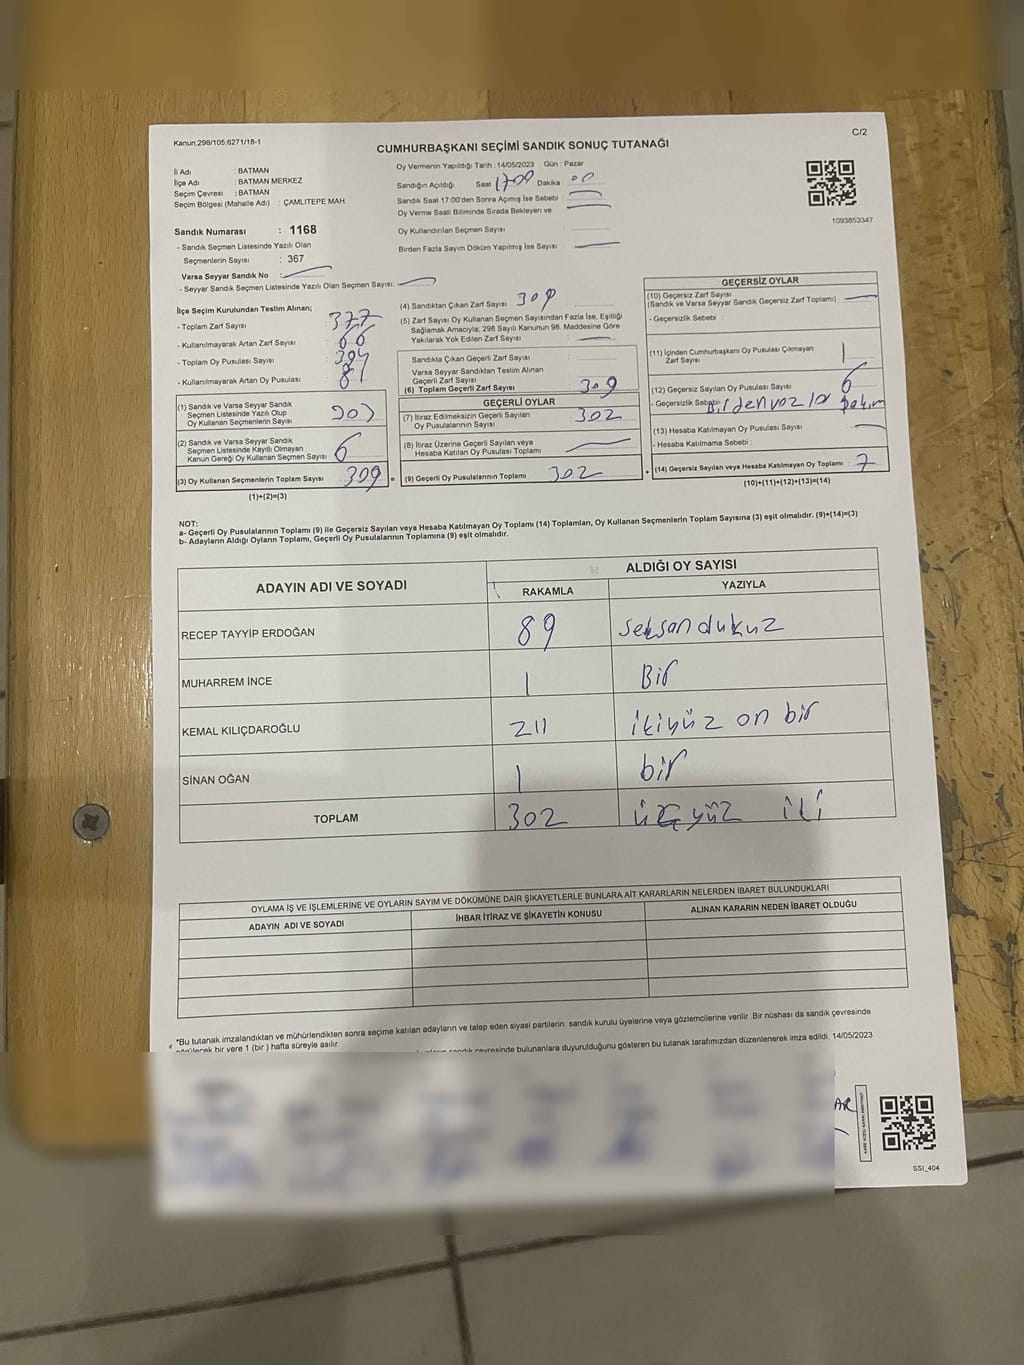 Kanun;298/105;6271/18-1
C/2
CUMHURBAŞKANI SEÇİMİ SANDIK SONUÇ TUTANAĞI
İl Adı : BATMAN
İlçe Adı : BATMAN MERKEZ
Seçim Çevresi : BATMAN
Seçim Bölgesi (Mahalle Adı) : ÇAMLITEPE MAH
Oy Vermenin Yapıldığı Tarih :14/05/2023 Gün : Pazar
Sandığın Açıldığı Saat 17:00 Dakika : 00
Sandık Saat 17:00'den Sonra Açımış İse Sebebi :
Oy Verme Saati Bitiminde Sırada Bekleyen ve
Oy Kullandırılan Seçmen Sayısı :
Birden Fazla Sayım Döküm Yapılmış İse Sayısı :
1093853347
Sandık Numarası : 1168
- Sandık Seçmen Listesinde Yazılı Olan
Seçmenlerin Sayısı : 367
Varsa Seyyar Sandık No :
- Seyyar Sandık Seçmen Listesinde Yazılı Olan Seçmen Sayısı:
İlçe Seçim Kurulundan Teslim Alınan;
- Toplam Zarf Sayısı : 377
- Kullanılmayarak Artan Zarf Sayısı : 66
- Toplam Oy Pusulası Sayısı : 394
- Kullanılmayarak Artan Oy Pusulası : 81
(1) Sandık ve Varsa Seyyar Sandık
Seçmen Listesinde Yazılı Olup
Oy Kullanan Seçmenlerin Sayısı 303
(2) Sandık ve Varsa Seyyar Sandık
Seçmen Listesinde Kayıtlı Olmayan
Kanun Gereği Oy Kullanan Seçmen Sayısı 6
(3) Oy Kullanan Seçmenlerin Toplam Sayısı 309 =
(1)+(2)=(3)
(4) Sandıktan Çıkan Zarf Sayısı : 309
(5) Zarf Sayısı Oy Kullanan Seçmen Sayısından Fazla İse, Eşitliği
Sağlamak Amacıyla; 298 Sayılı Kanunun 98. Maddesine Göre
Yakılarak Yok Edilen Zarf Sayısı :
Sandıkta Çıkan Geçerli Zarf Sayısı :
Varsa Seyyar Sandıktan Teslim Alınan
Geçerli Zarf Sayısı
(6) Toplam Geçerli Zarf Sayısı : 309
GEÇERLİ OYLAR
(7) İtiraz Edilmeksizin Geçerli Sayılan
Oy Pusulalarının Sayısı : 302
(8) İtiraz Üzerine Geçerli Sayılan veya
Hesaba Katılan Oy Pusulası Toplamı
(9) Geçerli Oy Pusulalarının Toplamı 302 +
GEÇERSİZ OYLAR
(10) Geçersiz Zarf Sayısı
(Sandık ve Varsa Seyyar Sandık Geçersiz Zarf Toplamı) :
- Geçersizlik Sebebi :
(11) İçinden Cumhurbaşkanı Oy Pusulası Çıkmayan
Zarf Sayısı : 1
(12) Geçersiz Sayılan Oy Pusulası Sayısı : 6
- Geçersizlik Sebebi :
(13) Hesaba Katılmayan Oy Pusulası Sayısı :
- Hesaba Katılmama Sebebi :
(14) Geçersiz Sayılan veya Hesaba Katılmayan Oy Toplamı : 7
(10)+(11)+(12)+(13)=(14)
NOT:
a- Geçerli Oy Pusulalarının Toplamı (9) ile Geçersiz Sayılan veya Hesaba Katılmayan Oy Toplamı (14) Toplamları, Oy Kullanan Seçmenlerin Toplam Sayısına (3) eşit olmalıdır. (9)+(14)=(3)
b- Adayların Aldığı Oyların Toplamı, Geçerli Oy Pusulalarının Toplamına (9) eşit olmalıdır.
ADAYIN ADI VE SOYADI
ALDIĞI OY SAYISI
RAKAMLA YAZIYLA
RECEP TAYYİP ERDOĞAN 89 seksan dukuz
MUHARREM İNCE 1 Bir
KEMAL KILIÇDAROĞLU 211 ikiyüz on bir
SİNAN OĞAN 1 bir
TOPLAM 302 üçyüz iki
OYLAMA İŞ VE İŞLEMLERİNE VE OYLARIN SAYIM VE DÖKÜMÜNE DAİR ŞİKAYETLERLE BUNLARA AİT KARARLARIN NELERDEN İBARET BULUNDUKLARI
ADAYIN ADI VE SOYADI İHBAR İTİRAZ VE ŞİKAYETİN KONUSU ALINAN KARARIN NEDEN İBARET OLDUĞU
*Bu tutanak imzalandıktan ve mühürlendikten sonra seçime katılan adayların ve talep eden siyasi partilerin sandık kurulu üyelerine veya gözlemcilerine verilir .Bir nüshası da sandık çevresinde
görülecek bir yere 1 (bir) hafta süreyle asılır.
sandık çevresinde bulunanlara duyurulduğunu gösteren bu tutanak tarafımızdan düzenlenerek imza edildi. 14/05/2023
AR
SSI_404